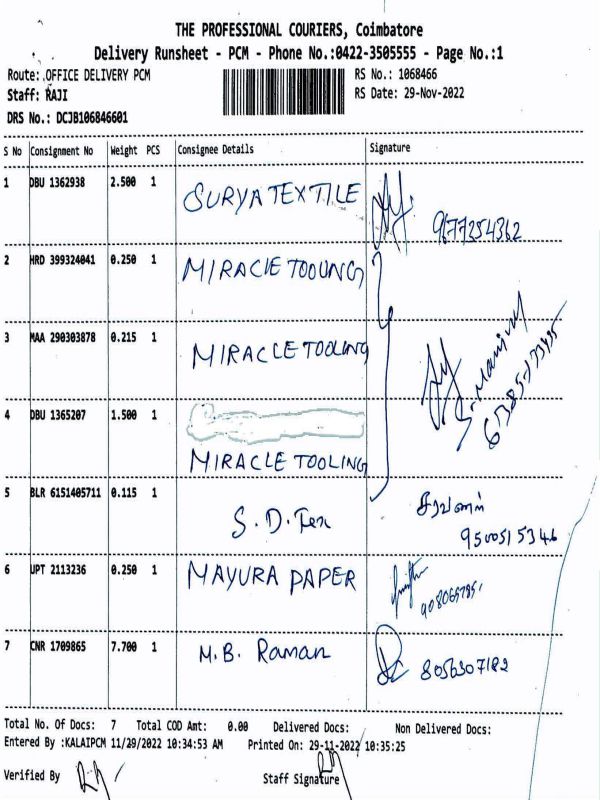 THE PROFESSIONAL COURIERS, Coimbatore
Delivery Runsheet - PCM - Phone No.:0422-3505555 - Page No.:1
Route: OFFICE DELIVERY PCM RS No.: 1068466
Staff: RAJI RS Date: 29-Nov-2022
DRS No.: DCJB106846601
S No Consignment No Weight PCS Consignee Details Signature
1 DBU 1362938 2.500 1 SURYA TEXTILE 9677254362
2 HRD 399324041 0.250 1 MIRACLE TOOLING
3 MAA 290303878 0.215 1 MIRACLE TOOLING
4 DBU 1365207 1.500 1 MIRACLE TOOLING
5 BLR 6151405711 0.115 1 S.D. Tex சரவணன்
9500515346
6 UPT 2113236 0.250 1 MAYURA PAPER
7 CNR 1709865 7.700 1 M.B. Raman 8056307182
Total No. Of Docs: 7 Total COD Amt: 0.00 Delivered Docs: Non Delivered Docs:
Entered By :KALAIPCM 11/29/2022 10:34:53 AM Printed On: 29-11-2022 10:35:25
Verified By Staff Signature